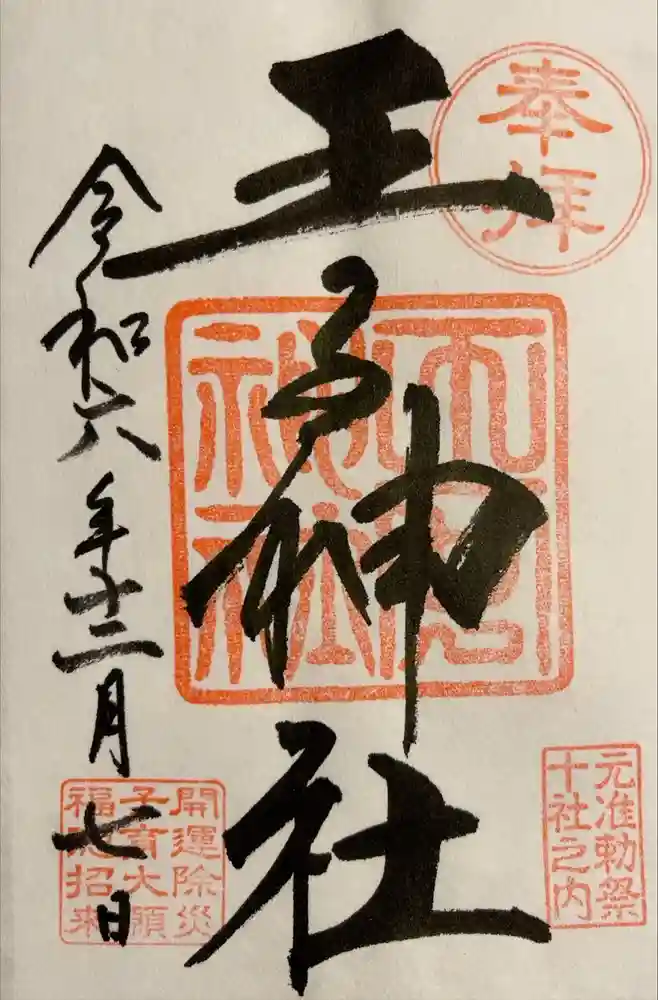 奉拝
元准勅祭
十社之内
王子神社
令和六年十二月七日
開運除災
子育大願
福徳招来